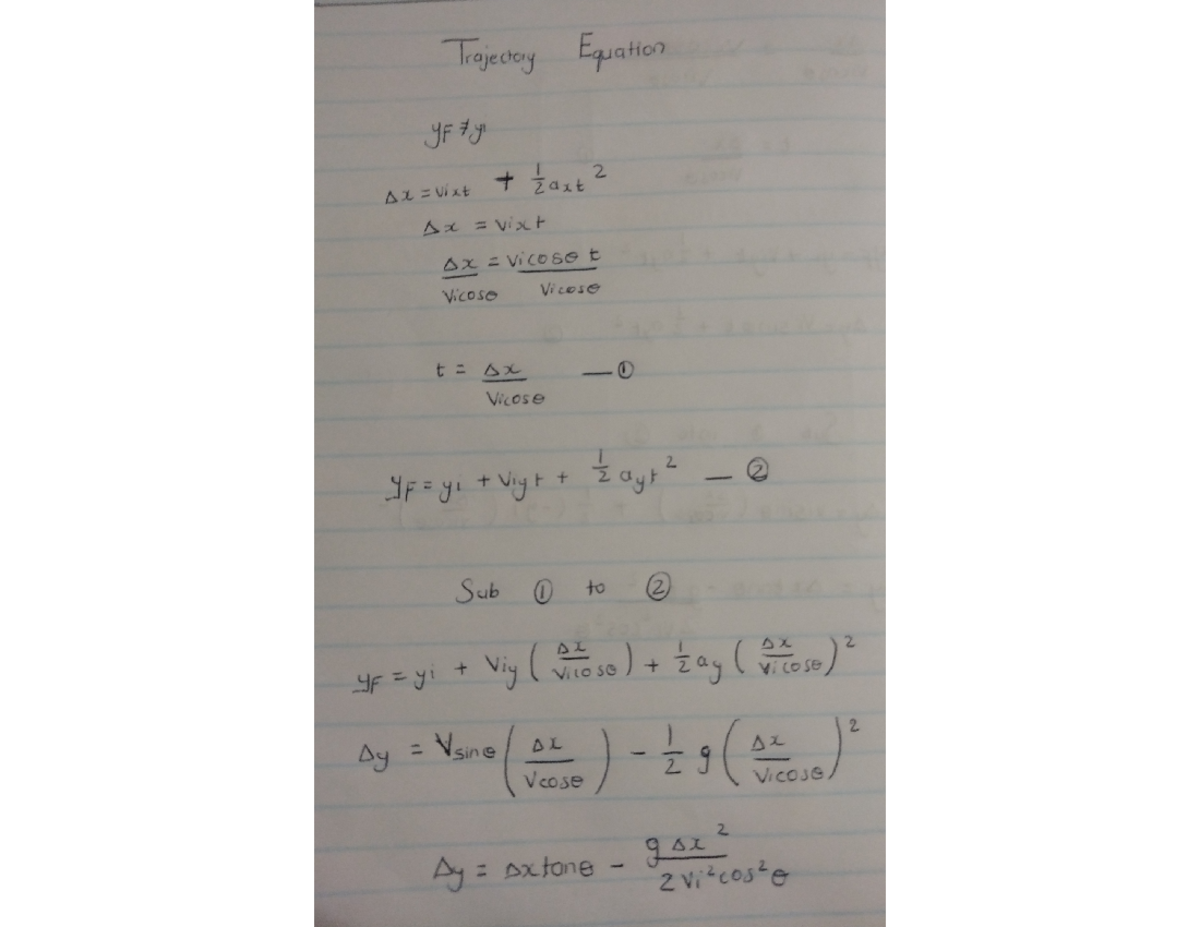 Trajectory Equation
yF ≠ yi
Δx = vixt + 1/2 axt²
Δx = vixt
Δx/Vicosθ = vicosθ t/Vicosθ
t = Δx/Vicosθ — ①
yF = yi + Viyt + 1/2 ayt² — ②
Sub ① to ②
yF = yi + Viy (Δx/Vicosθ) + 1/2 ay (Δx/Vicosθ)²
Δy = Vsinθ (Δx/Vcosθ) - 1/2 g (Δx/Vicosθ)²
Δy = Δxtanθ - gΔx²/2Vi²cos²θ